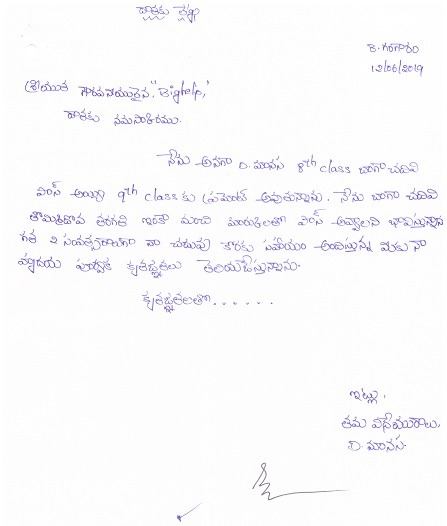 దాతకు లేఖ
B. గంగారం
12/06/2019
శ్రీయుత గౌరవనీయులైన, "Bighelp,"
దాతకు నమస్కారము.
నేను అనగా D. మానస 8th class బాగా చదివి
పాస్ అయ్యి 9th class కు ప్రమోట్ అవుతున్నాను. నేను బాగా చదివి
తొమ్మిదొవ తరగతి ఇంకా మంచి మార్కులతో పాస్ అవ్వాలని భావిస్తున్నాను
గత 2 సంవత్సరాలుగా నా చదువు కొరకు సహాయం అందిస్తున్న మీకు నా
హృదయ పూర్వక కృతజ్ఞతలు తెలియజేస్తున్నాను.
కృతజ్ఞతలతో......
ఇట్లు,
తమ విధేయురాలు,
D. మానస.